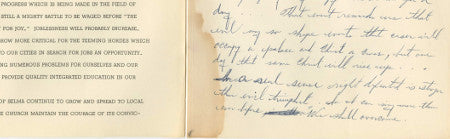 PROGRESS WHICH IS BEING MADE IN THE FIELD OF
STILL A MIGHTY BATTLE TO BE WAGED BEFORE "THE
FOR JOY." JOBLESSNESS WILL PROBABLY INCREASE,
ROW MORE CRITICAL FOR THE TEEMING HORDES WHICH
TO OUR CITIES IN SEARCH FOR JOBS AN OPPORTUNITY,
NG NUMEROUS PROBLEMS FOR OURSELVES AND OUR
PROVIDE QUALITY INTEGRATED EDUCATION IN OUR
OF SELMA CONTINUE TO GROW AND SPREAD TO LOCAL
E CHURCH MAINTAIN THE COURAGE OF ITS CONVIC-
day . That event reminds us that
will so shape events that ceasar will
occupy a palace and that a cross, but one
day that same will rise up
In a real sense right defeated is stronger
than evil triumphant. So it can
We shall overcome.